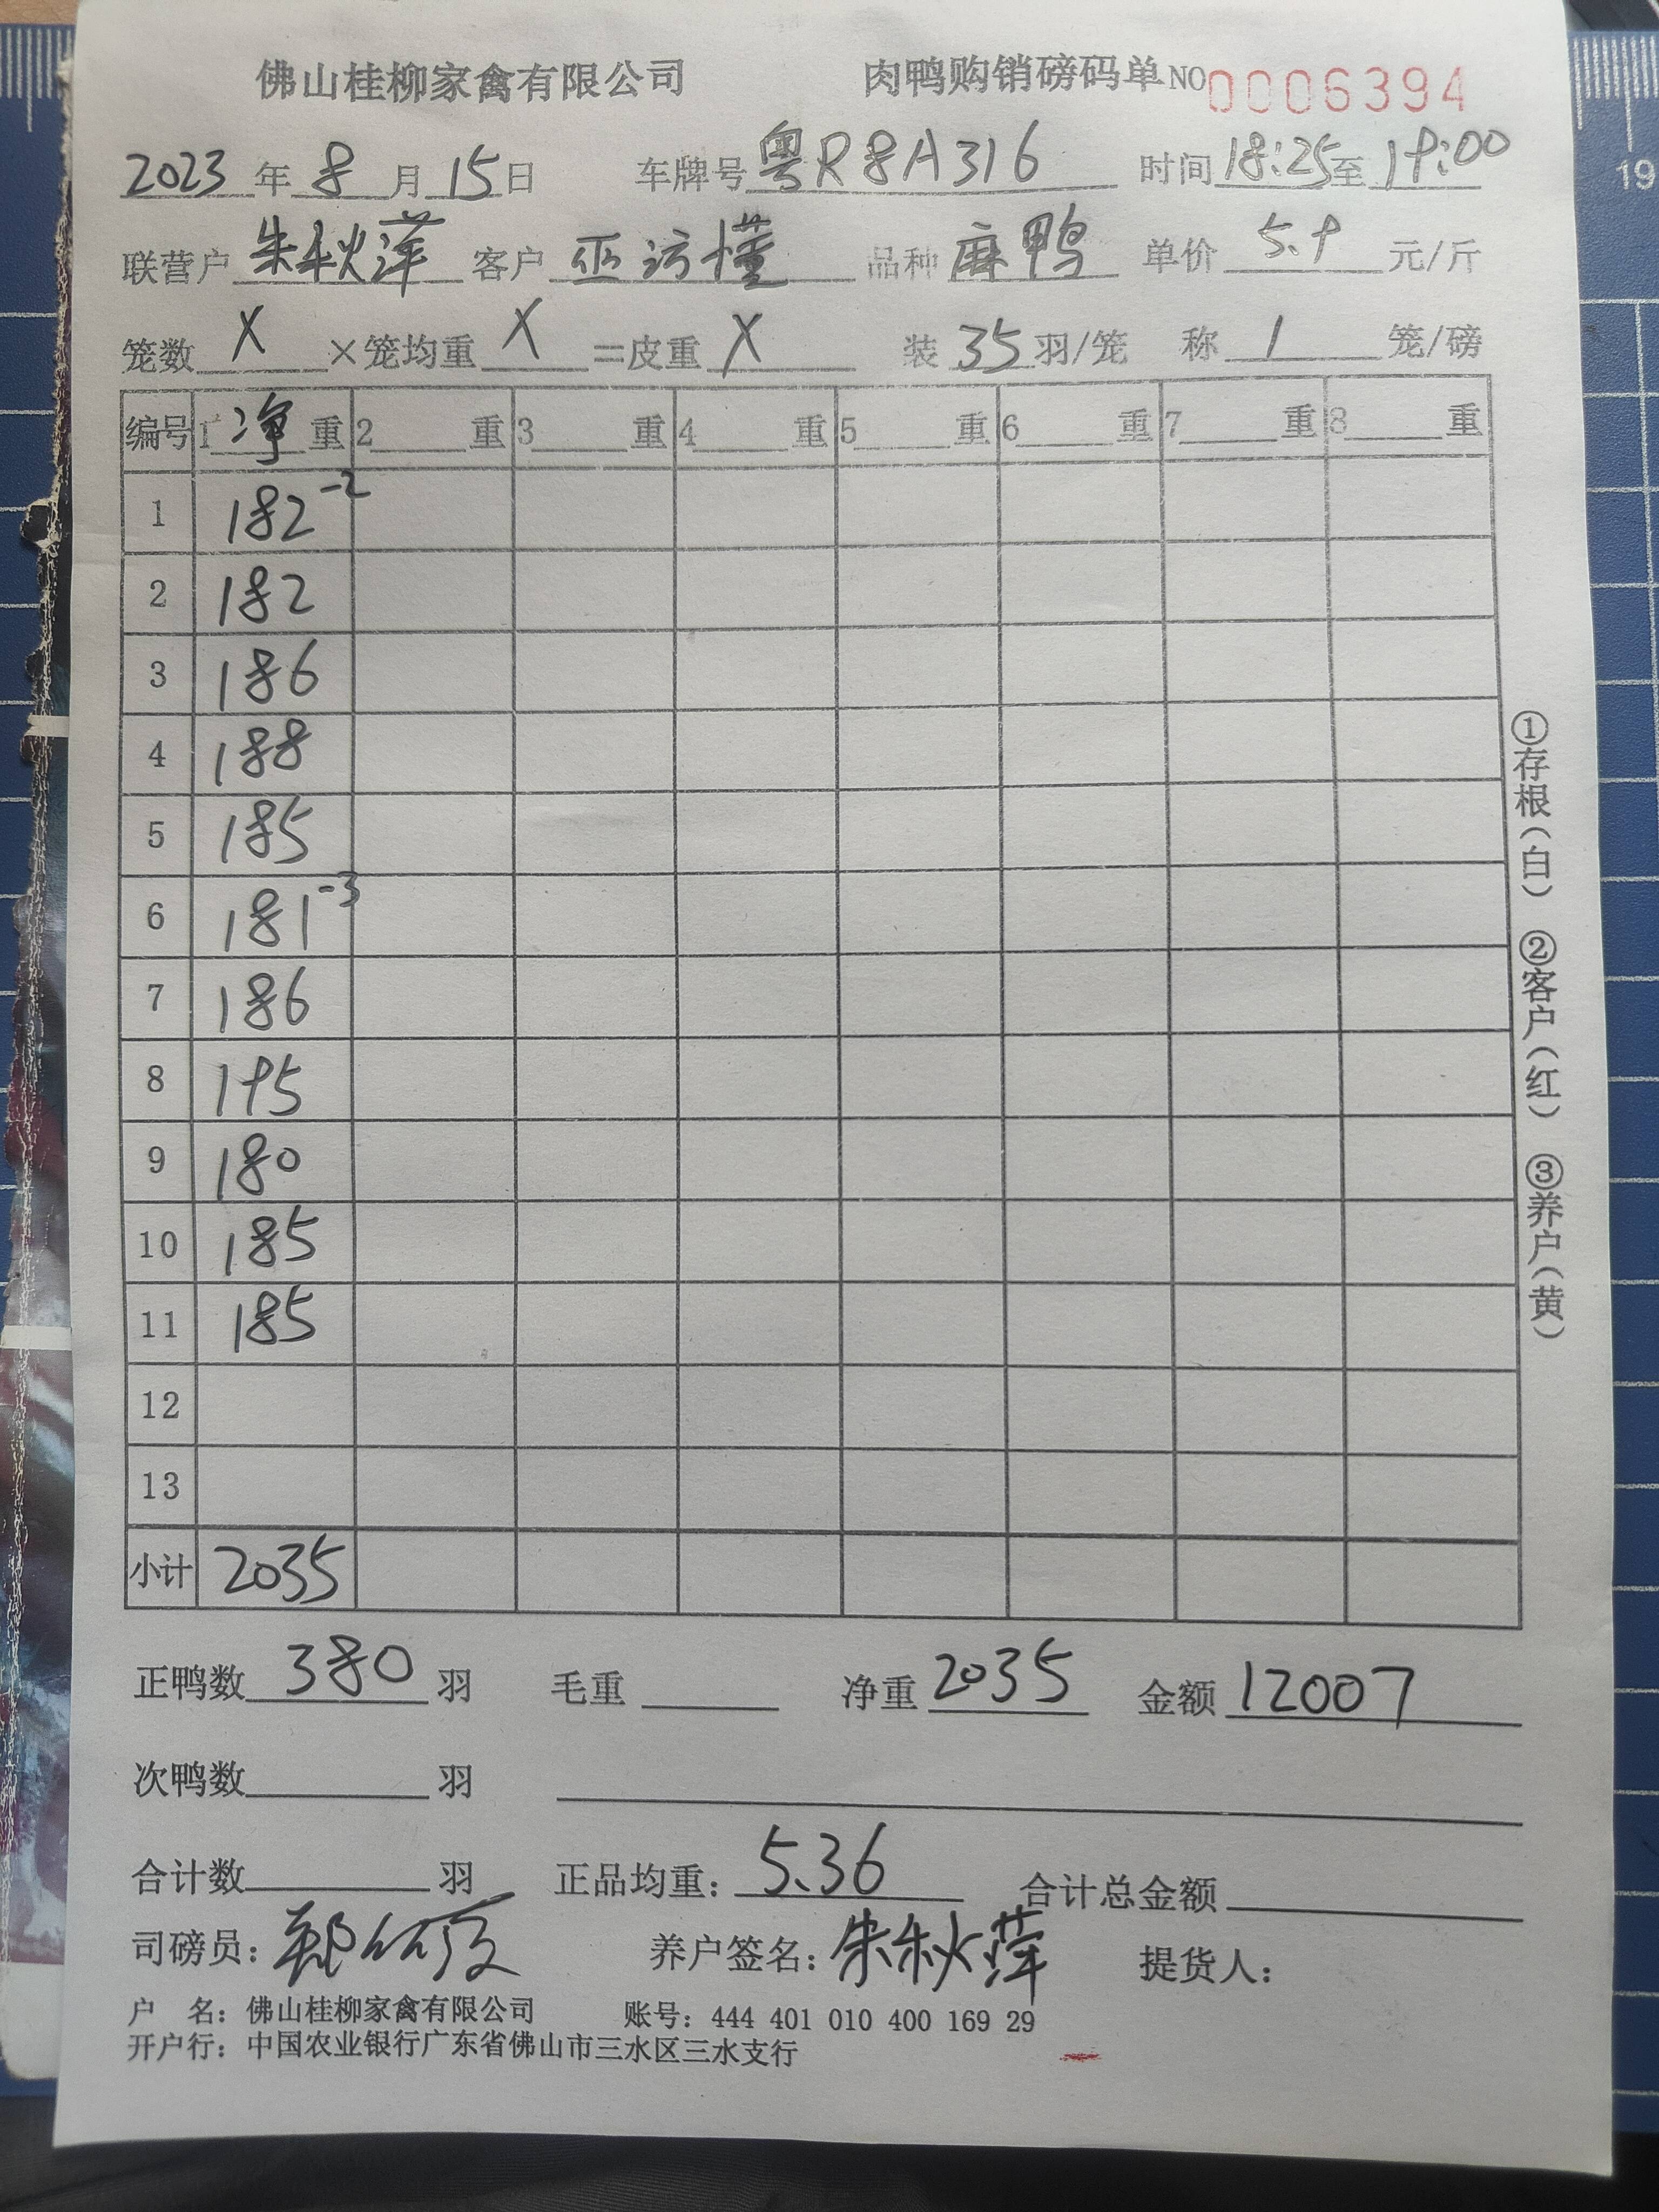 佛山桂柳家禽有限公司 肉鸭购销磅码单 NO 0006394
2023 年 8 月 15 日 车牌号 粤R8A316 时间 18:25 至 19:00
联营户 朱秋萍 客户 巫访懂 品种 麻鸭 单价 5.9 元/斤
笼数 X ×笼均重 X =皮重 X 装 35 羽/笼 称 1 笼/磅
编号 1 净 重 2 重 3 重 4 重 5 重 6 重 7 重 8 重
1 182 -2
2 182
3 186
4 188
5 185
6 181 -3
7 186
8 195
9 180
10 185
11 185
12
13
小计 2035
①存根(白) ②客户(红) ③养户(黄)
正鸭数 380 羽 毛重 净重 2035 金额 12007
次鸭数 羽
合计数 羽 正品均重: 5.36 合计总金额
司磅员: 养户签名: 朱秋萍 提货人:
户 名: 佛山桂柳家禽有限公司 账号: 444 401 010 400 169 29
开户行: 中国农业银行广东省佛山市三水区三水支行
19